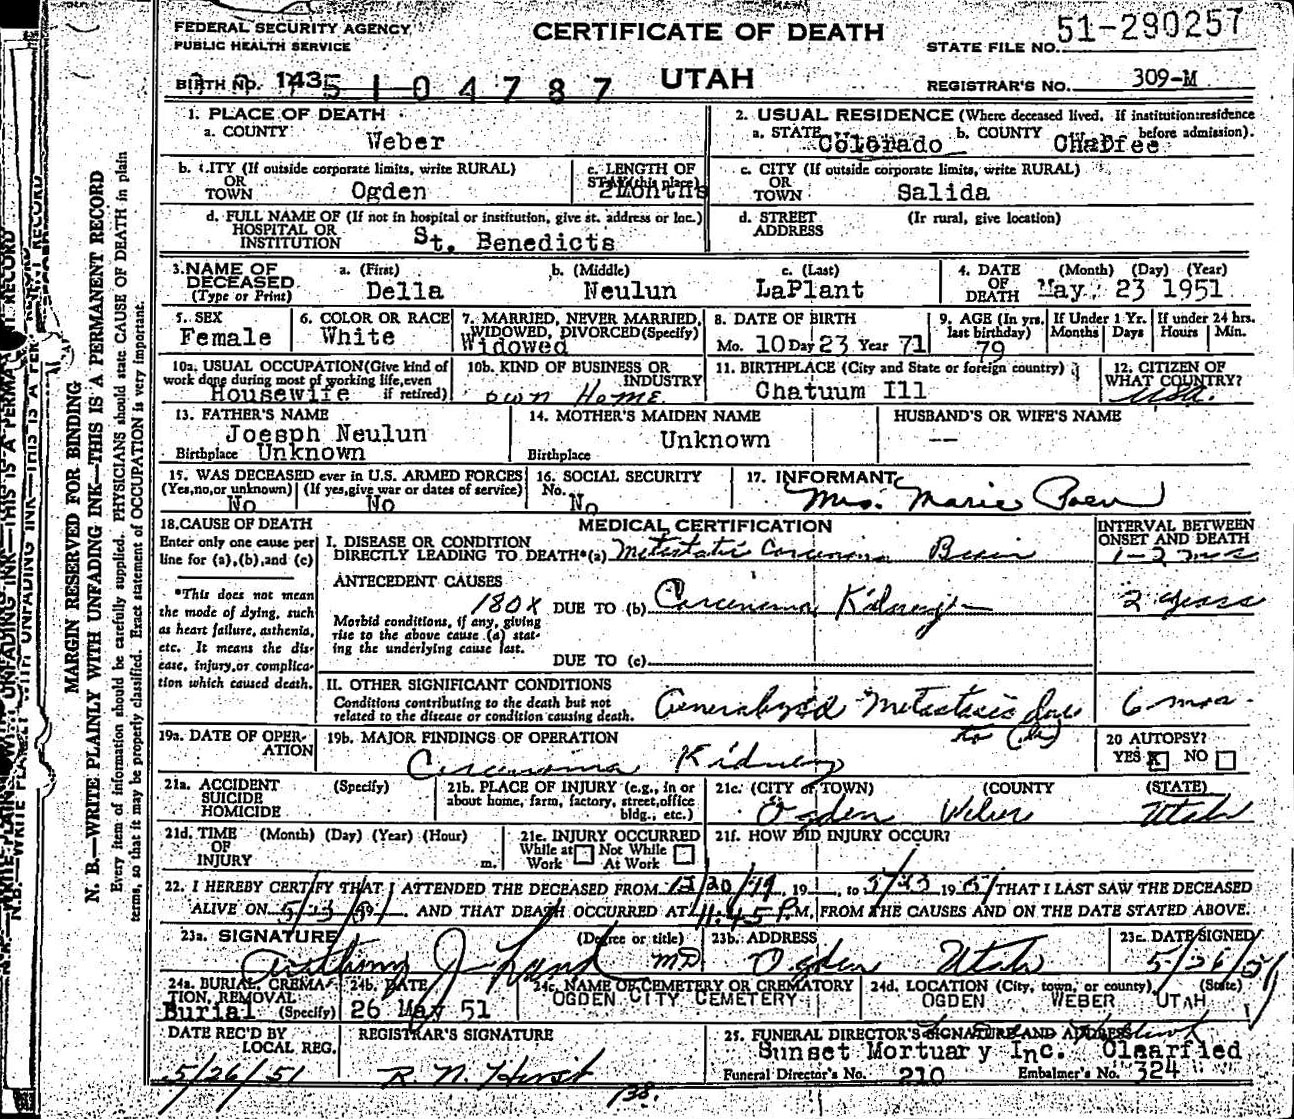 FEDERAL SECURITY AGENCY
PUBLIC HEALTH SERVICE
CERTIFICATE OF DEATH
STATE FILE NO. 51-290257
BIRTH NO. 143
5 1 0 4 7 8 7
UTAH
REGISTRAR'S NO. 309-M
MARGIN RESERVED FOR BINDING
N. B.—WRITE PLAINLY WITH UNFADING INK—THIS IS A PERMANENT RECORD
Every item of information should be carefully supplied. PHYSICIANS should state CAUSE OF DEATH in plain
terms, so that it may be properly classified. Exact statement of OCCUPATION is very important.
1. PLACE OF DEATH
a. COUNTY Weber
2. USUAL RESIDENCE (Where deceased lived. If institution:residence before admission).
a. STATE Colorado b. COUNTY Chaffee
b. CITY (If outside corporate limits, write RURAL)
OR TOWN Ogden
c. LENGTH OF STAY (this place) 2Months
c. CITY (If outside corporate limits, write RURAL)
OR TOWN Salida
d. FULL NAME OF (If not in hospital or institution, give st. address or loc.)
HOSPITAL OR INSTITUTION St. Benedicts
d. STREET ADDRESS (If rural, give location)
3. NAME OF DECEASED (Type or Print)
a. (First) Della
b. (Middle) Neulun
c. (Last) LaPlant
4. DATE OF DEATH (Month) (Day) (Year) May 23 1951
5. SEX Female
6. COLOR OR RACE White
7. MARRIED, NEVER MARRIED, WIDOWED, DIVORCED (Specify) Widowed
8. DATE OF BIRTH Mo. 10 Day 23 Year 71
9. AGE (In yrs. last birthday) 79
If Under 1 Yr. Months Days
If under 24 hrs. Hours Min.
10a. USUAL OCCUPATION (Give kind of work done during most of working life, even if retired) Housewife
10b. KIND OF BUSINESS OR INDUSTRY own Home.
11. BIRTHPLACE (City and State or foreign country) Chatuum Ill
12. CITIZEN OF WHAT COUNTRY? USA.
13. FATHER'S NAME Joesph Neulun
Birthplace Unknown
14. MOTHER'S MAIDEN NAME Unknown
Birthplace
HUSBAND'S OR WIFE'S NAME --
15. WAS DECEASED ever in U.S. ARMED FORCES
(Yes,no,or unknown) No (If yes,give war or dates of service) No
16. SOCIAL SECURITY No. No
17. INFORMANT Mrs. Marie
18. CAUSE OF DEATH
Enter only one cause per line for (a),(b),and (c)
*This does not mean the mode of dying, such as heart failure, asthenia, etc. It means the disease, injury,or complication which caused death.
MEDICAL CERTIFICATION
INTERVAL BETWEEN ONSET AND DEATH
I. DISEASE OR CONDITION
DIRECTLY LEADING TO DEATH*(a) Metastatic Carcinoma Brain 1-2 mos
ANTECEDENT CAUSES
180X DUE TO (b) Carcinoma Kidney 2 years
Morbid conditions, if any, giving rise to the above cause (a) stating the underlying cause last.
DUE TO (c)
II. OTHER SIGNIFICANT CONDITIONS
Conditions contributing to the death but not related to the disease or condition causing death.
Generalized Metastasis due to (b) 6 mos.
19a. DATE OF OPERATION
19b. MAJOR FINDINGS OF OPERATION
Carcinoma Kidney
20 AUTOPSY? YES X NO
21a. ACCIDENT SUICIDE HOMICIDE (Specify)
21b. PLACE OF INJURY (e.g., in or about home, farm, factory, street,office bldg., etc.)
21c. (CITY or TOWN) (COUNTY (STATE)
Ogden Weber Utah
21d. TIME OF INJURY (Month) (Day) (Year) (Hour) m.
21e. INJURY OCCURRED While at Work Not While At Work
21f. HOW DID INJURY OCCUR?
22. I HEREBY CERTIFY THAT I ATTENDED THE DECEASED FROM 12/20/49, 19 , to 5/23 1951 THAT I LAST SAW THE DECEASED
ALIVE ON 5/23/51 AND THAT DEATH OCCURRED AT 11:45 P.M, FROM THE CAUSES AND ON THE DATE STATED ABOVE.
23a. SIGNATURE (Degree or title) Anthony J. Lund MD
23b. ADDRESS Ogden Utah
23c. DATE SIGNED 5/26/51
24a. BURIAL, CREMATION, REMOVAL (Specify) Burial
24b. DATE 26 May 51
24c. NAME OF CEMETERY OR CREMATORY OGDEN CITY CEMETERY
24d. LOCATION (City, town, or county) (State) OGDEN WEBER UTAH
DATE REC'D BY LOCAL REG. 5/26/51
REGISTRAR'S SIGNATURE R. N. Hirst
25. FUNERAL DIRECTOR'S SIGNATURE AND ADDRESS
Sunset Mortuary Inc. Clearfied
Funeral Director's No. 210 Embalmer's No. 324
138.